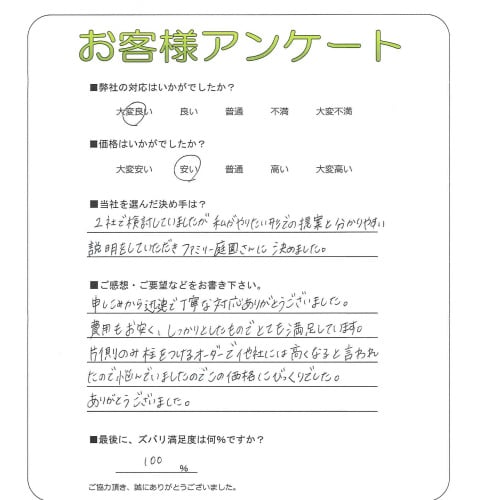 お客様アンケート
■弊社の対応はいかがでしたか？
大変良い 良い 普通 不満 大変不満
■価格はいかがでしたか？
大変安い 安い 普通 高い 大変高い
■当社を選んだ決め手は？
2社で検討していましたが私がやりたい形での提案と分かりやすい
説明をしていただきファミリー庭園さんに決めました。
■ご感想・ご要望などをお書き下さい。
申しこみから迅速で丁寧な対応ありがとうございました。
費用もお安く、しっかりとしたものでとても満足しています。
片側のみ柱をつけるオーダーで他社には高くなると言われ
たので悩んでいましたのでこの価格にびっくりでした。
ありがとうございました。
■最後に、ズバリ満足度は何％ですか？
100 %
ご協力頂き、誠にありがとうございました。